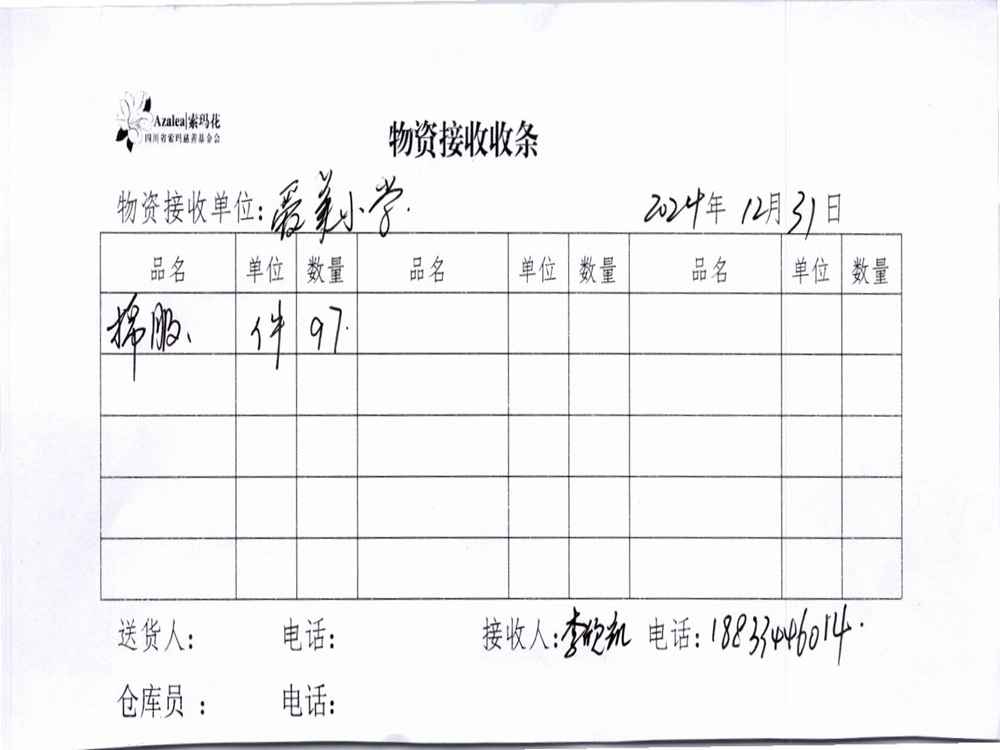 Azalea|索玛花
四川省索玛慈善基金会
物资接收收条
物资接收单位:爱美小学. 2024年 12月31日
品名 单位 数量 品名 单位 数量 品名 单位 数量
棉服、 件 97.
送货人: 电话: 接收人:李欣凯 电话:18833446014.
仓库员: 电话: